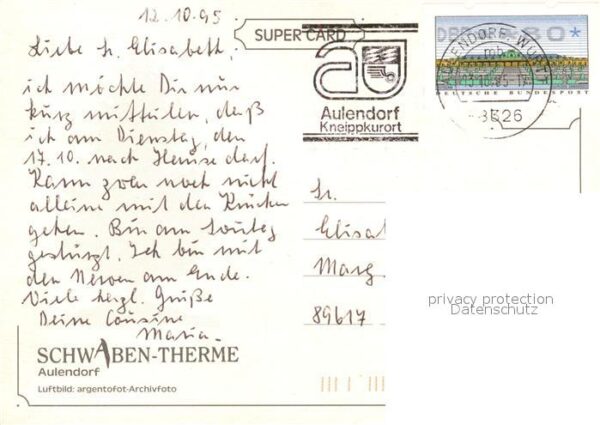 12.10.95
Liebe Sr. Elisabeth,
ich möchte Dir nur
kurz mitteilen, daß
ich am Dienstag, den
17.10. nach Hause darf.
Kann zwar noch nicht
alleine mit den Krücken
gehen. Bin am Sonntag
gestürzt. Ich bin mit
den Nerven am Ende.
Viele herzl. Grüße
Deine Cousine
Maria
SCHWABEN-THERME
Aulendorf
Luftbild: argentofot-Archivfoto
SUPER CARD
Aulendorf
Kneippkurort
DEUTSCHE BUNDESPOST
Sr.
Elisabet
Marg
89617
privacy protection
Datenschutz